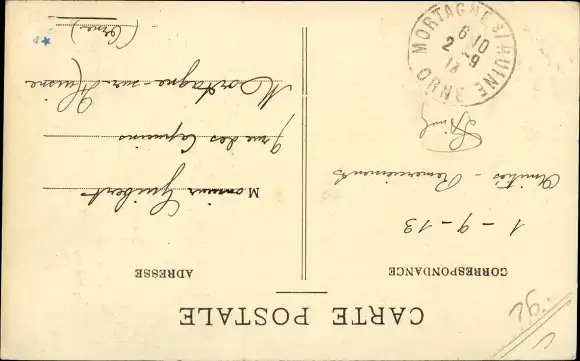 CARTE POSTALE
CORRESPONDANCE
1 - 9 - 13
Amitiés - Remerciements
ADRESSE
Monsieur Guibert
9 rue des Capucins
Mortagne-sur-Huisne
(Orne)
MORTAGNE S/HUINE
6 10
2 - 9
13
ORNE